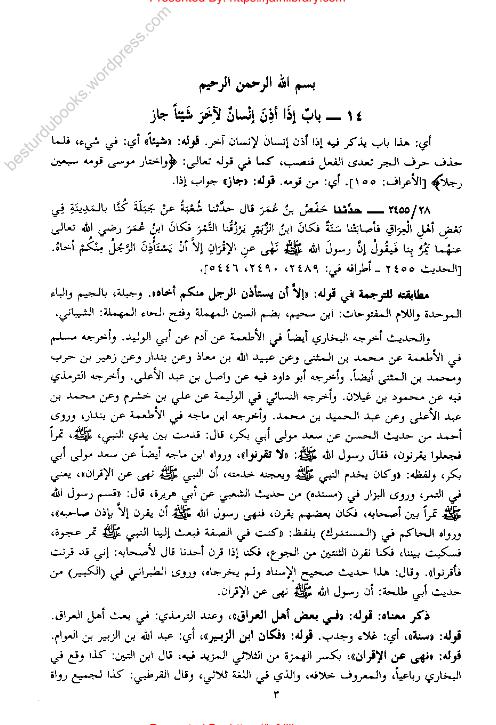 بسم الله الرحمن الرحيم
١٤ ــ بابٌ إذَا أذِنَ إنْسانٌ لآخَرَ شَيْئاً جاز
أي: هذا باب يذكر فيه إذا أذن إنسان لإنسان آخر. قوله: «شيئاً» أي: في شيء، فلما
حذف حرف الجر تعدى الفعل فنصب، كما في قوله تعالى: ﴿واختار موسى قومه سبعين
رجلا﴾ [الأعراف: ١٥٥]. أي: من قومه. قوله: «جاز» جواب إذا.
٢٨/٢٤٥٥ ــ حدَّثنا حَفْصُ بنُ عُمَرَ قال حدَّثنا شُعْبَةُ عنْ جَبَلَةَ كُنَّا بالمَدِينَةِ فِي
بَعْضِ أهْلِ الْعِرَاقِ فأصابَتْنا سَنَةٌ فَكانَ ابنُ الزُّبَيْرِ يَرْزُقُنا التَّمْرَ فكانَ ابنُ عُمَرَ رضي الله تعالى
عنهما يَمُرُّ بِنا فَيقُولُ إنَّ رسولَ الله ﷺ نَهَى عنِ الإقْرَانِ إلاَّ أنْ يَسْتَأْذِنَ الرَّجُلُ مِنْكُمْ أخاهُ.
[الحديث ٢٤٥٥ ــ أطرافه في: ٢٤٨٩، ٢٤٩٠، ٥٤٤٦].
مطابقته للترجمة في قوله: «إلاَّ أن يستأذن الرجل منكم أخاه». وجبلة، بالجيم والباء
الموحدة واللام المفتوحات: ابن سحيم، بضم السين المهملة وفتح الحاء المهملة: الشيباني.
والحديث أخرجه البخاري أيضاً في الأطعمة عن آدم عن أبي الوليد. وأخرجه مسلم
في الأطعمة عن محمد بن المثنى وعن عبيد الله بن معاذ وعن بندار وعن زهير بن حرب
ومحمد بن المثنى أيضاً. وأخرجه أبو داود فيه عن واصل بن عبد الأعلى. وأخرجه الترمذي
فيه عن محمود بن غيلان. وأخرجه النسائي في الوليمة عن علي بن خشرم وعن محمد بن
عبد الأعلى وعن عبد الحميد بن محمد. وأخرجه ابن ماجه في الأطعمة عن بندار، وروى
أحمد من حديث الحسن عن سعد مولى أبي بكر، قال: قدمت بين يدي النبي، ﷺ، تمراً
فجعلوا يقرنون، فقال رسول الله ﷺ: «لا تقرنوا»، ورواه ابن ماجه أيضاً عن سعد مولى أبي
بكر، ولفظه: «وكان يخدم النبي ﷺ ويعجبه خدمته، أن النبي ﷺ نهى عن الإقران»، يعني
في التمر، وروى البزار في (مسنده) من حديث الشعبي عن أبي هريرة، قال: «قسم رسول الله
ﷺ تمراً بين أصحابه، فكان بعضهم يقرن، فنهى رسول الله ﷺ أن يقرن إلاَّ بإذن صاحبه»،
ورواه الحاكم في (المستدرك) بلفظ: «كنت في الصفة فبعث إلينا النبي ﷺ تمر عجوة،
فسكبت بيننا، فكنا نقرن الثنتين من الجوع، فكنا إذا قرن أحدنا قال لأصحابه: إني قد قرنت
فأقرنوا». وقال: هذا حديث صحيح الإسناد ولم يخرجاه، وروى الطبراني في (الكبير) من
حديث أبي طلحة: أن رسول الله ﷺ نهى عن الإقران.
ذكر معناه: قوله: «في بعض أهل العراق»، وعند الترمذي: في بعث أهل العراق.
قوله: «سنة»، أي: غلاء وجدب. قوله: «فكان ابن الزبير»، أي: عبد الله بن الزبير بن العوام.
قوله: «نهى عن الإقران»، بكسر الهمزة من الثلاثي المزيد فيه، قال ابن التين: كذا وقع في
البخاري رباعياً، والمعروف خلافه، والذي في اللغة ثلاثي، وقال القرطبي: كذا لجميع رواة
٣
besturdubooks.wordpress.com